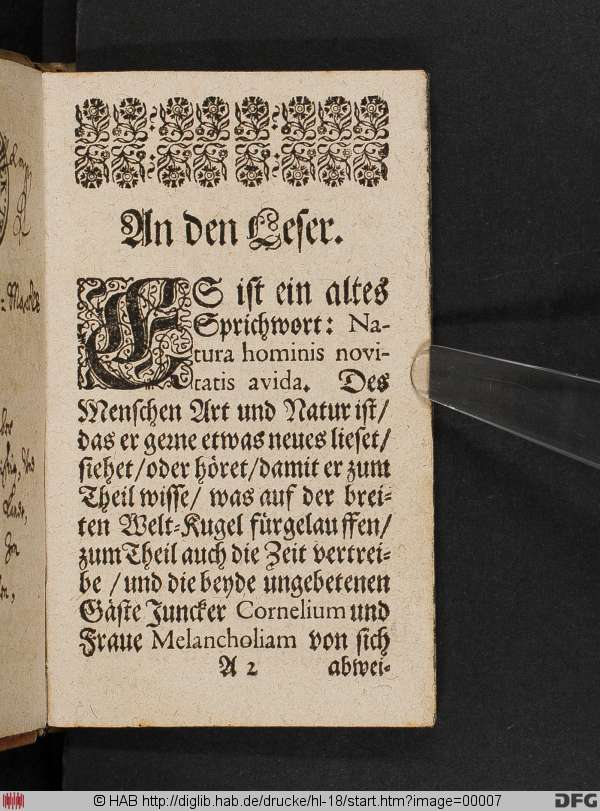 An den Leser.
ES ist ein altes
Sprichwort: Na-
tura hominis novi-
tatis avida. Des
Menschen Art und Natur ist/
das er gerne etwas neues lieset/
siehet/oder höret/damit er zum
Theil wisse/ was auf der brei-
ten Welt-Kugel fürgelauffen/
zum Theil auch die Zeit vertrei-
be /und die beyde ungebetenen
Gäste Juncker Cornelium und
Fraue Melancholiam von sich
A 2 abwei-
© HAB http://diglib.hab.de/drucke/hl-18/start.htm?image=00007
DFG